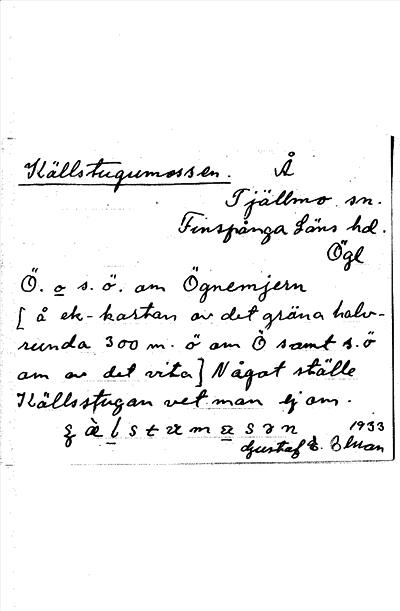 Källstugumossen. Å
Tjällmo sn.
Finspånga Läns hd.
Ögl
Ö. o s. ö. om Ögnemjern
[å ek-kartan av det gröna halv-
runda 300 m. ö om Ö samt s.ö
om av det vita] Något ställe
Källsstugan vet man ej om.
1933
Gustaf E.